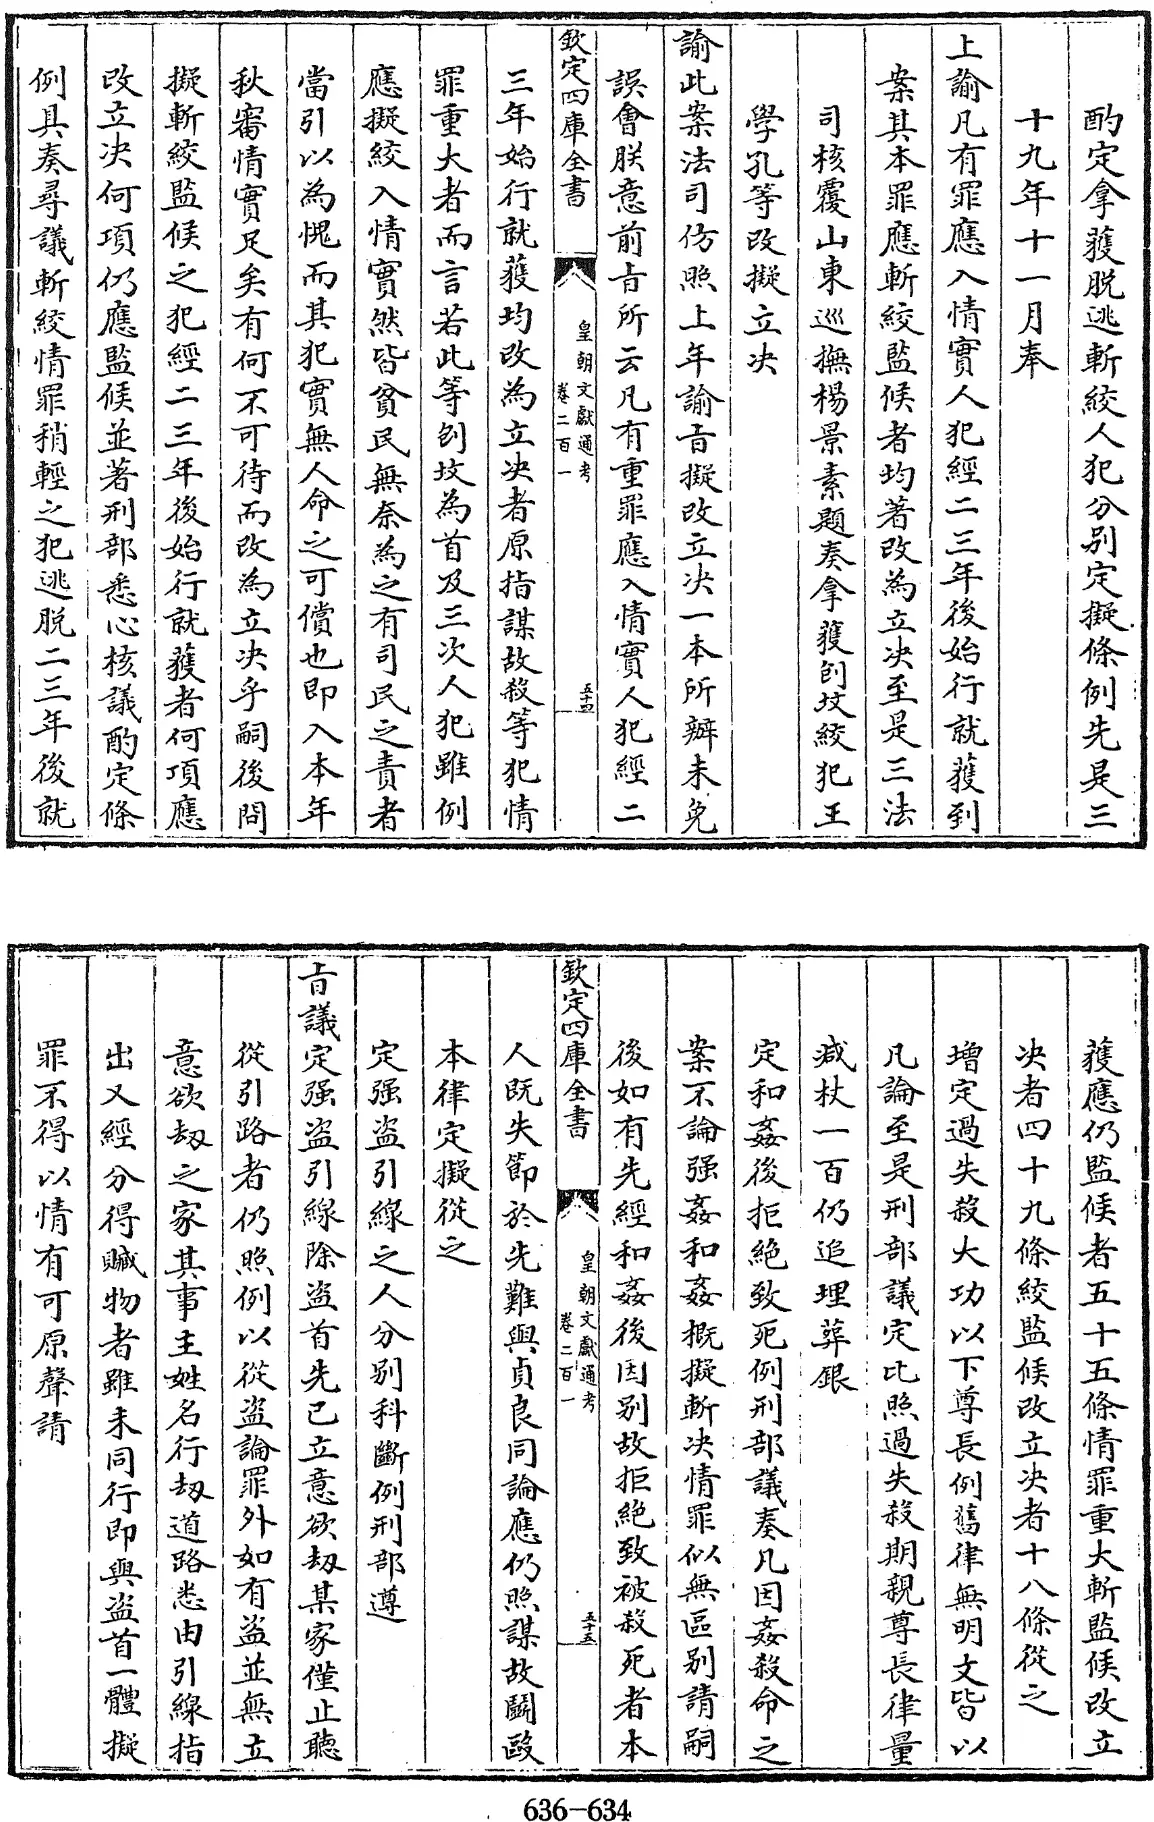 酌定拿獲脱逃斬絞人犯分别定擬條例先是三
十九年十一月奉
上諭凡有罪應入情實人犯經二三年後始行就獲到
案其本罪應斬絞監候者均著改為立决至是三法
司核覆山東巡撫楊景素題奏拿獲刨坟絞犯王
學孔等改擬立决
諭此案法司仿照上年諭旨擬改立决一本所辦未免
誤會朕意前旨所云凡有重罪應入情實人犯經二
欽定四庫全書
皇朝文獻通考
卷二百一
五十四
三年始行就獲均改為立决者原指謀故殺等犯情
罪重大者而言若此等刨坟為首及三次人犯雖例
應擬絞入情實然皆貧民無奈為之有司民之責者
當引以為愧而其犯實無人命之可償也即入本年
秋審情實足矣有何不可待而改為立决乎嗣後問
擬斬絞監候之犯經二三年後始行就獲者何項應
改立决何項仍應監候並著刑部悉心核議酌定條
例具奏尋議斬絞情罪稍輕之犯逃脱二三年後就
獲應仍監候者五十五條情罪重大斬監候改立
决者四十九條絞監候改立决者十八條從之
增定過失殺大功以下尊長例舊律無明文皆以
凡論至是刑部議定比照過失殺期親尊長律量
减杖一百仍追理葬銀
定和姦後拒絶致死例刑部議奏凡因姦殺命之
案不論强姦和姦概擬斬决情罪似無區别請嗣
後如有先經和姦後因别故拒絶致被殺死者本
欽定四庫全書
皇朝文獻通考
卷二百一
五十五
人既失節於先難與貞良同論應仍照謀故鬭毆
本律定擬從之
定强盗引線之人分别科斷例刑部遵
旨議定强盗引線除盗首先已立意欲刼某家僅止聽
從引路者仍照例以從盗論罪外如有盗並無立
意欲刼之家其事主姓名行刼道路悉由引線指
出又經分得贓物者雖未同行即與盗首一體擬
罪不得以情有可原聲請
636-634